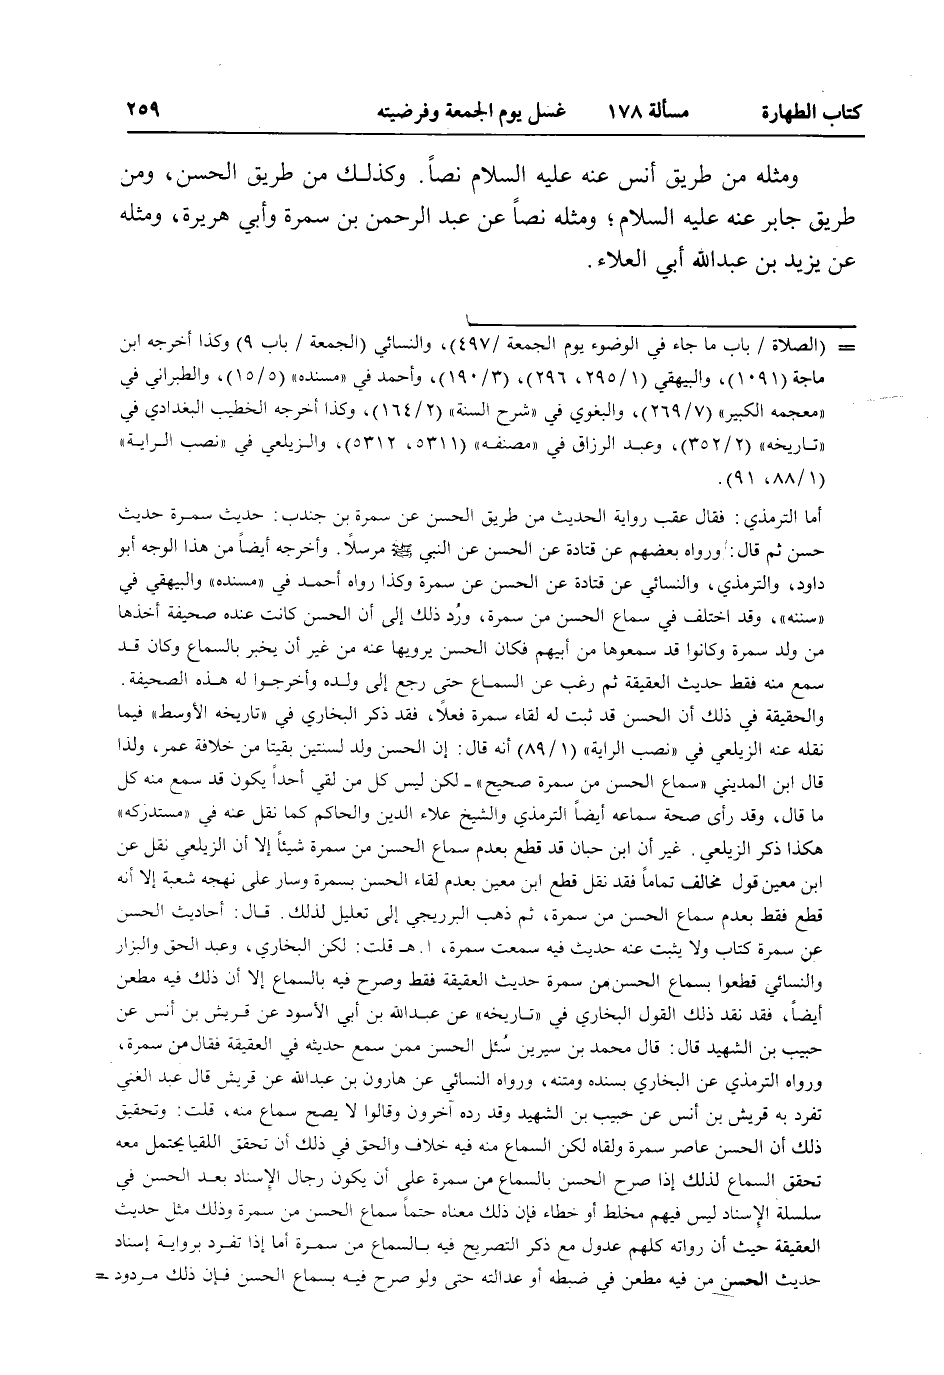 كتاب الطهارة مسألة ١٧٨ غسل يوم الجمعة وفرضيته ٢٥٩
ومثله من طريق أنس عنه عليه السلام نصاً. وكذلك من طريق الحسن، ومن
طريق جابر عنه عليه السلام؛ ومثله نصاً عن عبد الرحمن بن سمرة وأبي هريرة، ومثله
عن يزيد بن عبدالله أبي العلاء.
= (الصلاة / باب ما جاء في الوضوء يوم الجمعة /٤٩٧)، والنسائي (الجمعة / باب ٩) وكذا أخرجه ابن
ماجة (١٠٩١)، والبيهقي (٢٩٥/١، ٢٩٦)، (١٩٠/٣)، وأحمد في «مسنده» (١٥/٥)، والطبراني في
«معجمه الكبير» (٢٦٩/٧)، والبغوي في «شرح السنة» (١٦٤/٢)، وكذا أخرجه الخطيب البغدادي في
«تاريخه» (٣٥٢/٢)، وعبد الرزاق في «مصنفه» (٥٣١١، ٥٣١٢)، والزيلعي في «نصب الراية»
(٨٨/١، ٩١).
أما الترمذي: فقال عقب رواية الحديث من طريق الحسن عن سمرة بن جندب: حديث سمرة حديث
حسن ثم قال: ورواه بعضهم عن قتادة عن الحسن عن النبي ﷺ مرسلاً. وأخرجه أيضاً من هذا الوجه أبو
داود، والترمذي، والنسائي عن قتادة عن الحسن عن سمرة وكذا رواه أحمد في «مسنده» والبيهقي في
«سننه»، وقد اختلف في سماع الحسن من سمرة، ورُد ذلك إلى أن الحسن كانت عنده صحيفة أخذها
من ولد سمرة وكانوا قد سمعوها من أبيهم فكان الحسن يرويها عنه من غير أن يخبر بالسماع وكان قد
سمع منه فقط حديث العقيقة ثم رغب عن السماع حتى رجع إلى ولده وأخرجوا له هذه الصحيفة.
والحقيقة في ذلك أن الحسن قد ثبت له لقاء سمرة فعلاً، فقد ذكر البخاري في «تاريخه الأوسط» فيما
نقله عنه الزيلعي في «نصب الراية» (٨٩/١) أنه قال: إن الحسن ولد لسنتين بقيتا من خلافة عمر، ولذا
قال ابن المديني «سماع الحسن من سمرة صحيح» ـ لكن ليس كل من لقي أحداً يكون قد سمع منه كل
ما قال، وقد رأى صحة سماعه أيضاً الترمذي والشيخ علاء الدين والحاكم كما نقل عنه في «مستدركه»
هكذا ذكر الزيلعي. غير أن ابن حبان قد قطع بعدم سماع الحسن من سمرة شيئاً إلا أن الزيلعي نقل عن
ابن معين قول مخالف تماماً فقد نقل قطع ابن معين بعدم لقاء الحسن بسمرة وسار على نهجه شعبة إلا أنه
قطع فقط بعدم سماع الحسن من سمرة، ثم ذهب البرريجي إلى تعليل لذلك. قال: أحاديث الحسن
عن سمرة كتاب ولا يثبت عنه حديث فيه سمعت سمرة، ا.هـ قلت: لكن البخاري، وعبد الحق والبزار
والنسائي قطعوا بسماع الحسن من سمرة حديث العقيقة فقط وصرح فيه بالسماع إلا أن ذلك فيه مطعن
أيضاً، فقد نقد ذلك القول البخاري في «تاريخه» عن عبدالله بن أبي الأسود عن قريش بن أنس عن
حبيب بن الشهيد قال: قال محمد بن سيرين سُئل الحسن ممن سمع حديثه في العقيقة فقال من سمرة،
ورواه الترمذي عن البخاري بسنده ومتنه، ورواه النسائي عن هارون بن عبدالله عن قريش قال عبد الغني
تفرد به قريش بن أنس عن حبيب بن الشهيد وقد رده آخرون وقالوا لا يصح سماع منه، قلت: وتحقيق
ذلك أن الحسن عاصر سمرة ولقاه لكن السماع منه فيه خلاف والحق في ذلك أن تحقق اللقيا يحتمل معه
تحقق السماع لذلك إذا صرح الحسن بالسماع من سمرة على أن يكون رجال الإسناد بعد الحسن في
سلسلة الإسناد ليس فيهم مخلط أو خطاء فإن ذلك معناه حتماً سماع الحسن من سمرة وذلك مثل حديث
العقيقة حيث أن رواته كلهم عدول مع ذكر التصريح فيه بالسماع من سمرة أما إذا تفرد برواية إسناد
حديث الحسن من فيه مطعن في ضبطه أو عدالته حتى ولو صرح فيه بسماع الحسن فإن ذلك مردود =